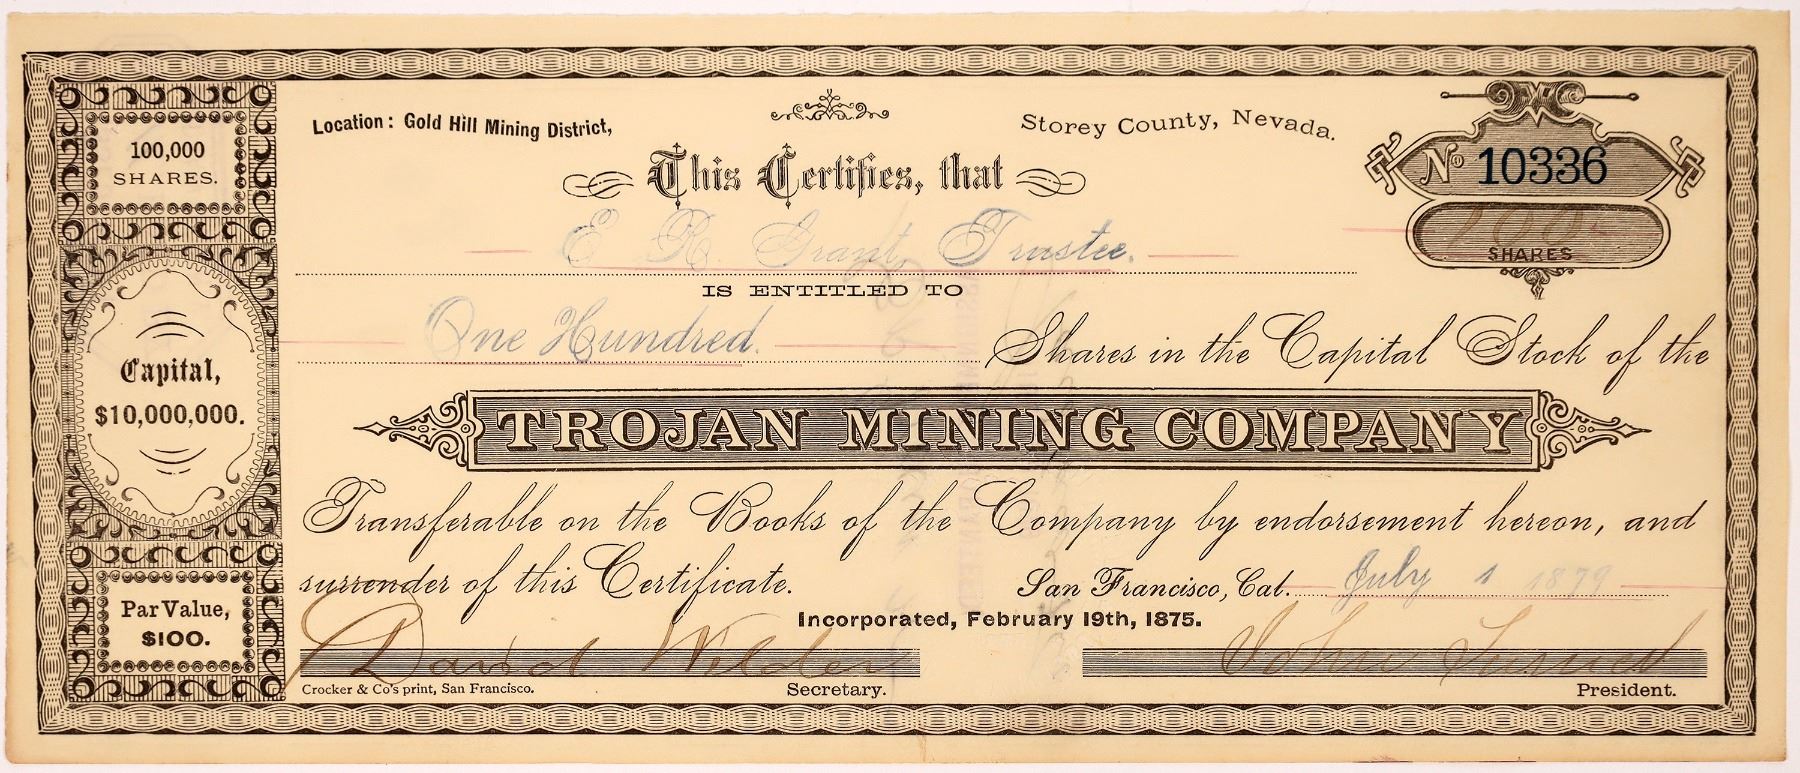 Location: Gold Hill Mining District,
Storey County, Nevada.
100,000
SHARES.
This Certifies, that
No 10336
E R Grant, Trustee.
100
SHARES
IS ENTITLED TO
One Hundred.
Shares in the Capital Stock of the
Capital,
$10,000,000.
TROJAN MINING COMPANY
Transferable on the Books of the Company by endorsement hereon, and
surrender of this Certificate.
San Francisco, Cal. July 1 1879
Par Value,
$100.
Incorporated, February 19th, 1875.
David Wilder
John
Crocker & Co's print, San Francisco.
Secretary.
President.